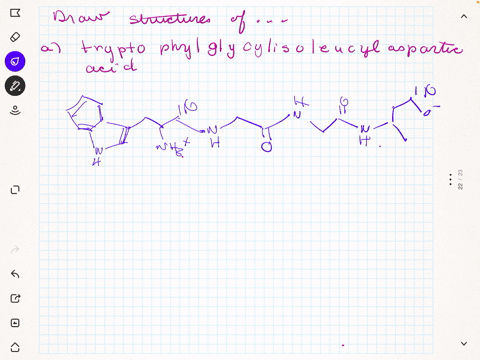 Draw structures of...
a) tryptophylglycylisoleucyl aspartic
acid
H O
O
N
H
NH3+
N
H
O
N
H
O-
22 / 23